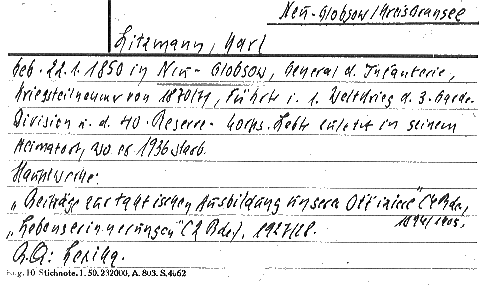 Neu-Globsow/Kreis Gransee
Litzmann, Karl
Geb. 22.1.1850 in Neu-Globsow, General d. Infanterie,
Kriegsteilnehmer von 1870/71, führte i. 1. Weltkrieg d. 3. Garde-
Division u. d. 40. Reserve-Korps. Lebte zuletzt in seinem
Heimatort, wo er 1936 starb.
Hauptwerke:
„Beiträge zur taktischen Ausbildung unserer Offiziere" (4 Bde,
1894/1905,
„Lebenserinnerungen" (2 Bde), 1927/28.
10 Stichnote. 1. 50. 232000, A. 803. S. 4662